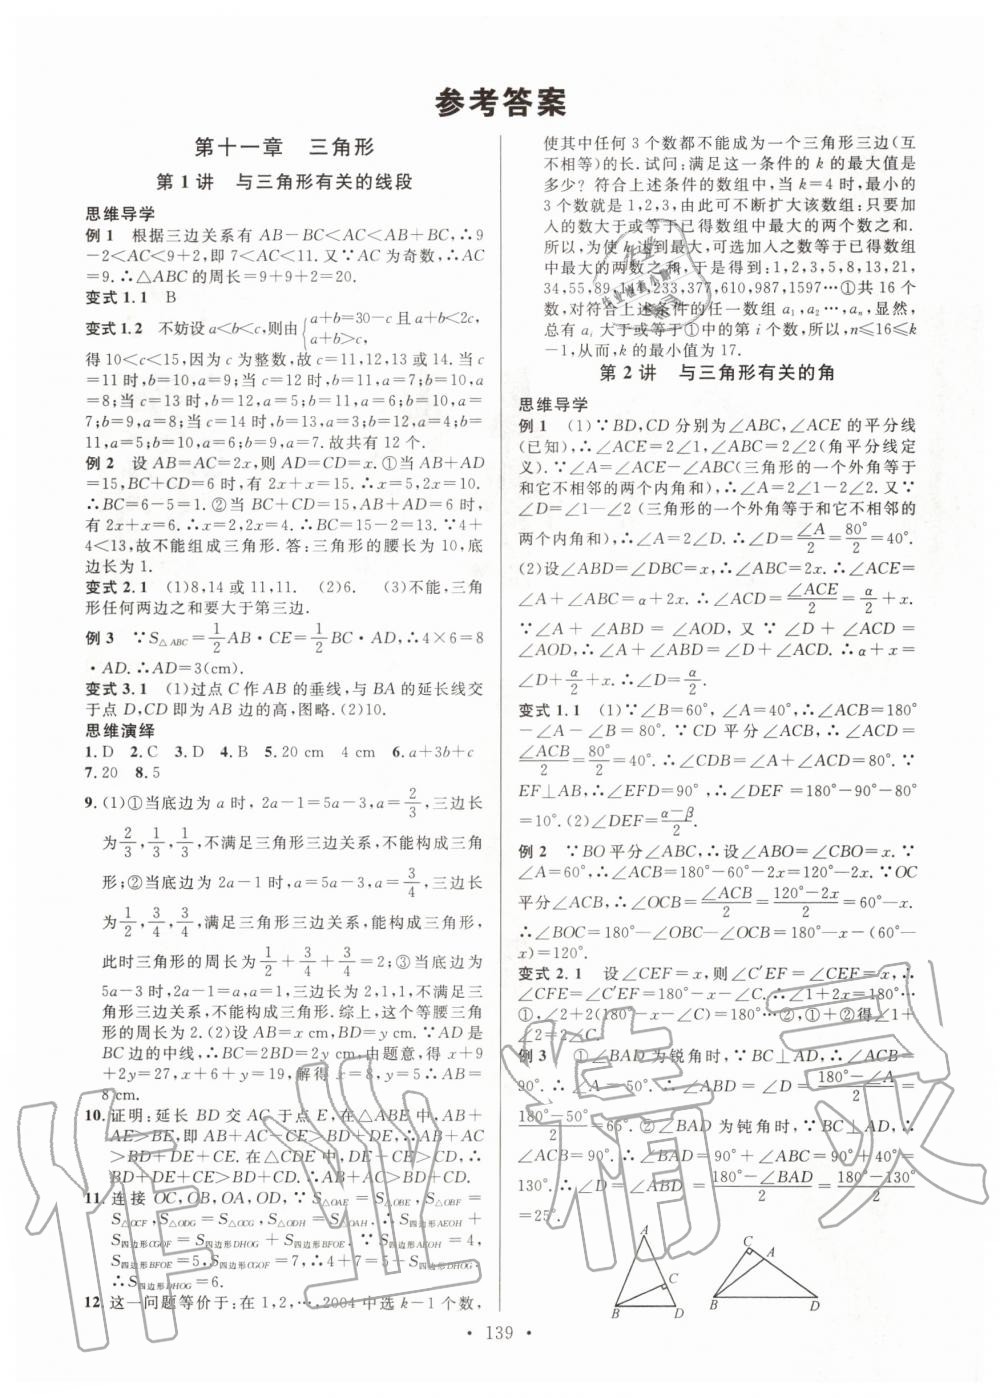 参考答案
第十一章 三角形
第 1 讲 与三角形有关的线段
思维导学
例 1 根据三边关系有 AB－BC＜AC＜AB＋BC,∴9
－2＜AC＜9＋2,即 7＜AC＜11. 又∵AC 为奇数,∴AC
＝9. ∴△ABC 的周长＝9＋9＋2＝20.
变式 1.1 B
变式 1.2 不妨设 a＜b＜c,则由{a＋b＝30－c 且 a＋b＜2c,
a＋b＞c,
得 10＜c＜15,因为 c 为整数,故 c＝11,12,13 或 14. 当 c
＝11 时,b＝10,a＝9;当 c＝12 时,b＝11,a＝7;b＝10,a
＝8;当 c＝13 时,b＝12,a＝5;b＝11,a＝6;b＝10,a＝
7;b＝9,a＝8;当 c＝14 时,b＝13,a＝3;b＝12,a＝4;b＝
11,a＝5;b＝10,a＝6;b＝9,a＝7. 故共有 12 个.
例 2 设 AB＝AC＝2x,则 AD＝CD＝x. ①当 AB＋AD
＝15,BC＋CD＝6 时,有 2x＋x＝15. ∴x＝5,2x＝10.
∴BC＝6－5＝1. ②当 BC＋CD＝15,AB＋AD＝6 时,
有 2x＋x＝6. ∴x＝2,2x＝4. ∴BC＝15－2＝13. ∵4＋
4＜13,故不能组成三角形. 答:三角形的腰长为 10,底
边长为 1.
变式 2.1 (1)8,14 或 11,11. (2)6. (3)不能,三角
形任何两边之和要大于第三边.
例 3 ∵S△ABC＝1/2 AB·CE＝1/2 BC·AD,∴4×6＝8
·AD. ∴AD＝3(cm).
变式 3.1 (1)过点 C 作 AB 的垂线,与 BA 的延长线交
于点 D,CD 即为 AB 边的高,图略. (2)10.
思维演绎
1. D 2. C 3. D 4. B 5. 20 cm 4 cm 6. a＋3b＋c
7. 20 8. 5
9. (1)①当底边为 a 时, 2a－1＝5a－3, a＝2/3, 三边长
为 2/3, 1/3, 1/3, 不满足三角形三边关系, 不能构成三角
形;②当底边为 2a－1 时, a＝5a－3, a＝3/4, 三边长
为 1/2, 3/4, 3/4, 满足三角形三边关系, 能构成三角形,
此时三角形的周长为 1/2＋3/4＋3/4＝2;③当底边为
5a－3 时,2a－1＝a,a＝1,三边长为 2,1,1,不满足三
角形三边关系,不能构成三角形. 综上,这个等腰三角
形的周长为 2. (2)设 AB＝x cm,BD＝y cm. ∵AD 是
BC 边的中线,∴BC＝2BD＝2y cm. 由题意,得 x＋9
＋2y＝27, x＋6＋y＝19, 解得 x＝8. ∴AB＝
8 cm.
10. 证明:延长 BD 交 AC 于点 E,在△ABE 中,AB＋
AE＞BE,即 AB＋AC－CE＞BD＋DE,∴AB＋AC
＞BD＋DE＋CE. 在△CDE 中,DE＋CE＞CD,∴
BD＋DE＋CE＞BD＋CD. ∴AB＋AC＞BD＋CD.
11. 连接 OC, OB, OA, OD, ∵S△OAE＝S△OBE, S△OBF＝
S△OCF, S△ODG＝S△OCG, S△ODH＝S△OAH. ∴S四边形AEOH＋
S四边形CGOF＝S四边形DHOG＋S四边形BFOE. ∵S四边形AEOH＝4,
S四边形BFOE＝5,S四边形CGOF＝7,∴4＋7＝5＋S四边形DHOG.
∴S四边形DHOG＝6.
12. 这一问题等价于:在 1,2,…,2004 中选 k－1 个数,
使其中任何 3 个数都不能成为一个三角形三边(互
不相等)的长. 试问:满足这一条件的 k 的最大值是
多少? 符合上述条件的数组中,当 k＝4 时,最小的
3 个数就是 1,2,3,由此可不断扩大该数组:只要加
入的数大于或等于已得数组中最大的两个数之和.
所以,为使 k 达到最大,可选加入之数等于已得数组
中最大的两数之和,于是得到:1,2,3,5,8,13,21,
34,55,89,144,233,377,610,987,1597…①共 16 个
数,对符合上述条件的任一数组 a₁,a₂…,aₙ,显然,
总有 aᵢ 大于或等于①中的第 i 个数,所以,n≤16≤k
－1,从而,k 的最小值为 17.
第 2 讲 与三角形有关的角
思维导学
例 1 (1)∵BD,CD 分别为∠ABC,∠ACE 的平分线
(已知),∴∠ACE＝2∠1,∠ABC＝2∠2(角平分线定
义). ∵∠A＝∠ACE－∠ABC(三角形的一个外角等于
和它不相邻的两个内角和),∴∠A＝2∠1－2∠2. 又∵
∠D＝∠1－∠2 (三角形的一个外角等于和它不相邻的
两个内角和),∴∠A＝2∠D. ∴∠D＝∠A/2＝80°/2＝40°.
(2)设∠ABD＝∠DBC＝x,∴∠ABC＝2x. ∴∠ACE＝
∠A＋∠ABC＝α＋2x. ∴∠ACD＝∠ACE/2＝α/2＋x.
∵∠A＋∠ABD＝∠AOD, 又∵∠D＋∠ACD＝
∠AOD,∴∠A＋∠ABD＝∠D＋∠ACD. ∴α＋x＝
∠D＋α/2＋x,∴∠D＝α/2.
变式 1.1 (1)∵∠B＝60°,∠A＝40°,∴∠ACB＝180°
－∠A－∠B＝80°. ∵CD 平分∠ACB,∴∠ACD＝
∠ACB/2＝80°/2＝40°. ∴∠CDB＝∠A＋∠ACD＝80°. ∵
EF⊥AB,∴∠EFD＝90°,∴∠DEF＝180°－90°－80°
＝10°. (2)∠DEF＝α－β/2.
例 2 ∵BO 平分∠ABC,∴设∠ABO＝∠CBO＝x. ∵
∠A＝60°,∴∠ACB＝180°－60°－2x＝120°－2x. ∵OC
平分∠ACB,∴∠OCB＝∠ACB/2＝120°－2x/2＝60°－x.
∴∠BOC＝180°－∠OBC－∠OCB＝180°－x－(60°－
x)＝120°.
变式 2.1 设∠CEF＝x,则∠C′EF＝∠CEF＝x,∴
∠CFE＝∠C′FE＝180°－x－∠C,∴∠1＋2x＝180°…
①,∠2＋2(180°－x－∠C)＝180°…②,①＋②得∠1＋
∠2＝2∠C.
例 3 ①∠BAD 为锐角时,∵BC⊥AD,∴∠ACB＝
90°. ∴∠A＝50°. ∴∠ABD＝∠D＝180°－∠A/2＝
180°－50°/2＝65°. ②∠BAD 为钝角时,∵BC⊥AD,∴
∠ACB＝90°,∴∠BAD＝90°＋∠ABC＝90°＋40°＝
130°. ∴∠D＝∠ABD＝180°－∠BAD/2＝180°－130°/2
＝25°.
A
C
B
D
C
A
B
D
· 139 ·
作业精灵